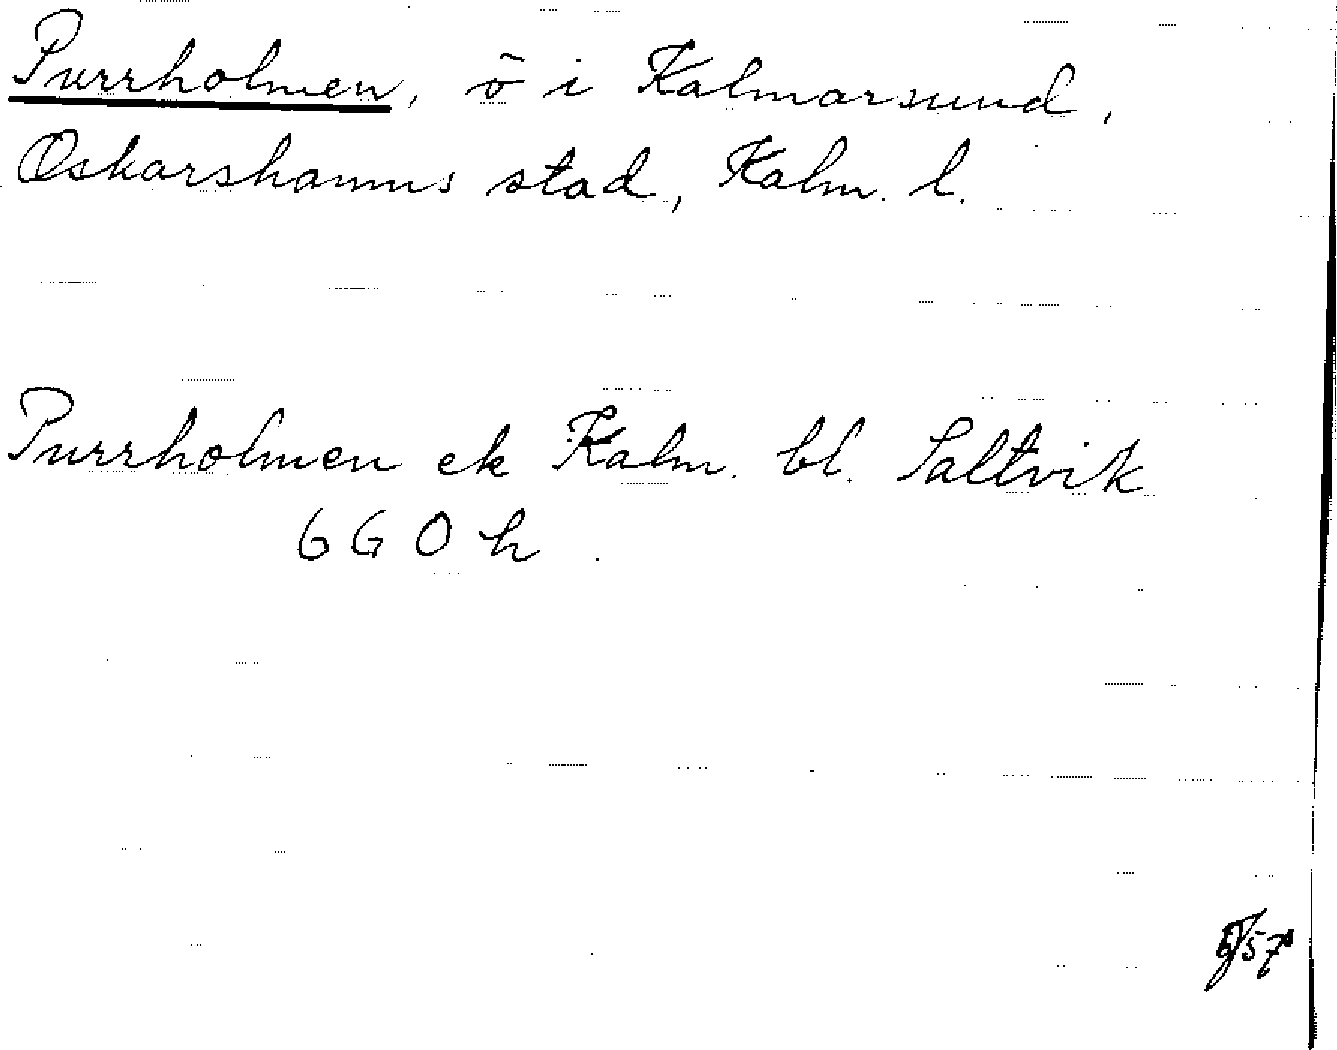 Purrholmen, ö i Kalmarsund,
Oskarshamns stad, Kalm. l.
Purrholmen ek Kalm. bl. Saltvik
6 G 0 h